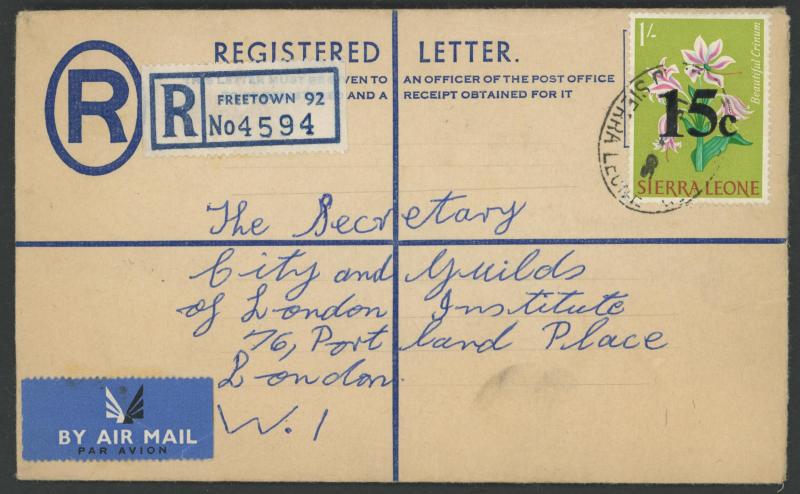 REGISTERED LETTER.
THIS LETTER MUST BE GIVEN TO AN OFFICER OF THE POST OFFICE
AND A RECEIPT OBTAINED FOR IT
R
R FREETOWN 92
No 4594
1/-
Beautiful Crinum
15c
SIERRA LEONE
SIERRA LEONE
The Secretary
City and Guilds
of London Institute
76, Port land Place
London.
W.1
BY AIR MAIL
PAR AVION